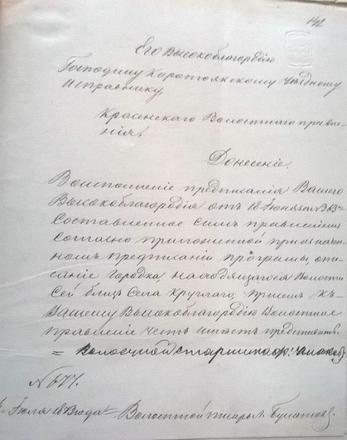 142
Его Высокоблагородію
Господину Коротоякскому Уѣздному
Исправнику
Красенского Волостного правле-
нія.
Донесеніе.
предписанія Вашего
Высокоблагородія отъ 18 Іюня №
составленное симъ правленіемъ
согласно приложенной при означен-
номъ предписаніи програмы, опи-
саніе городка находящагося
сей близь села Круглаго, при семъ къ
Вашему Высокоблагородію Волостное
правленіе честь имѣетъ представить.
Волостной Старшина
№ 677.
Іюля 1873 года Волостной писарь Булатовъ